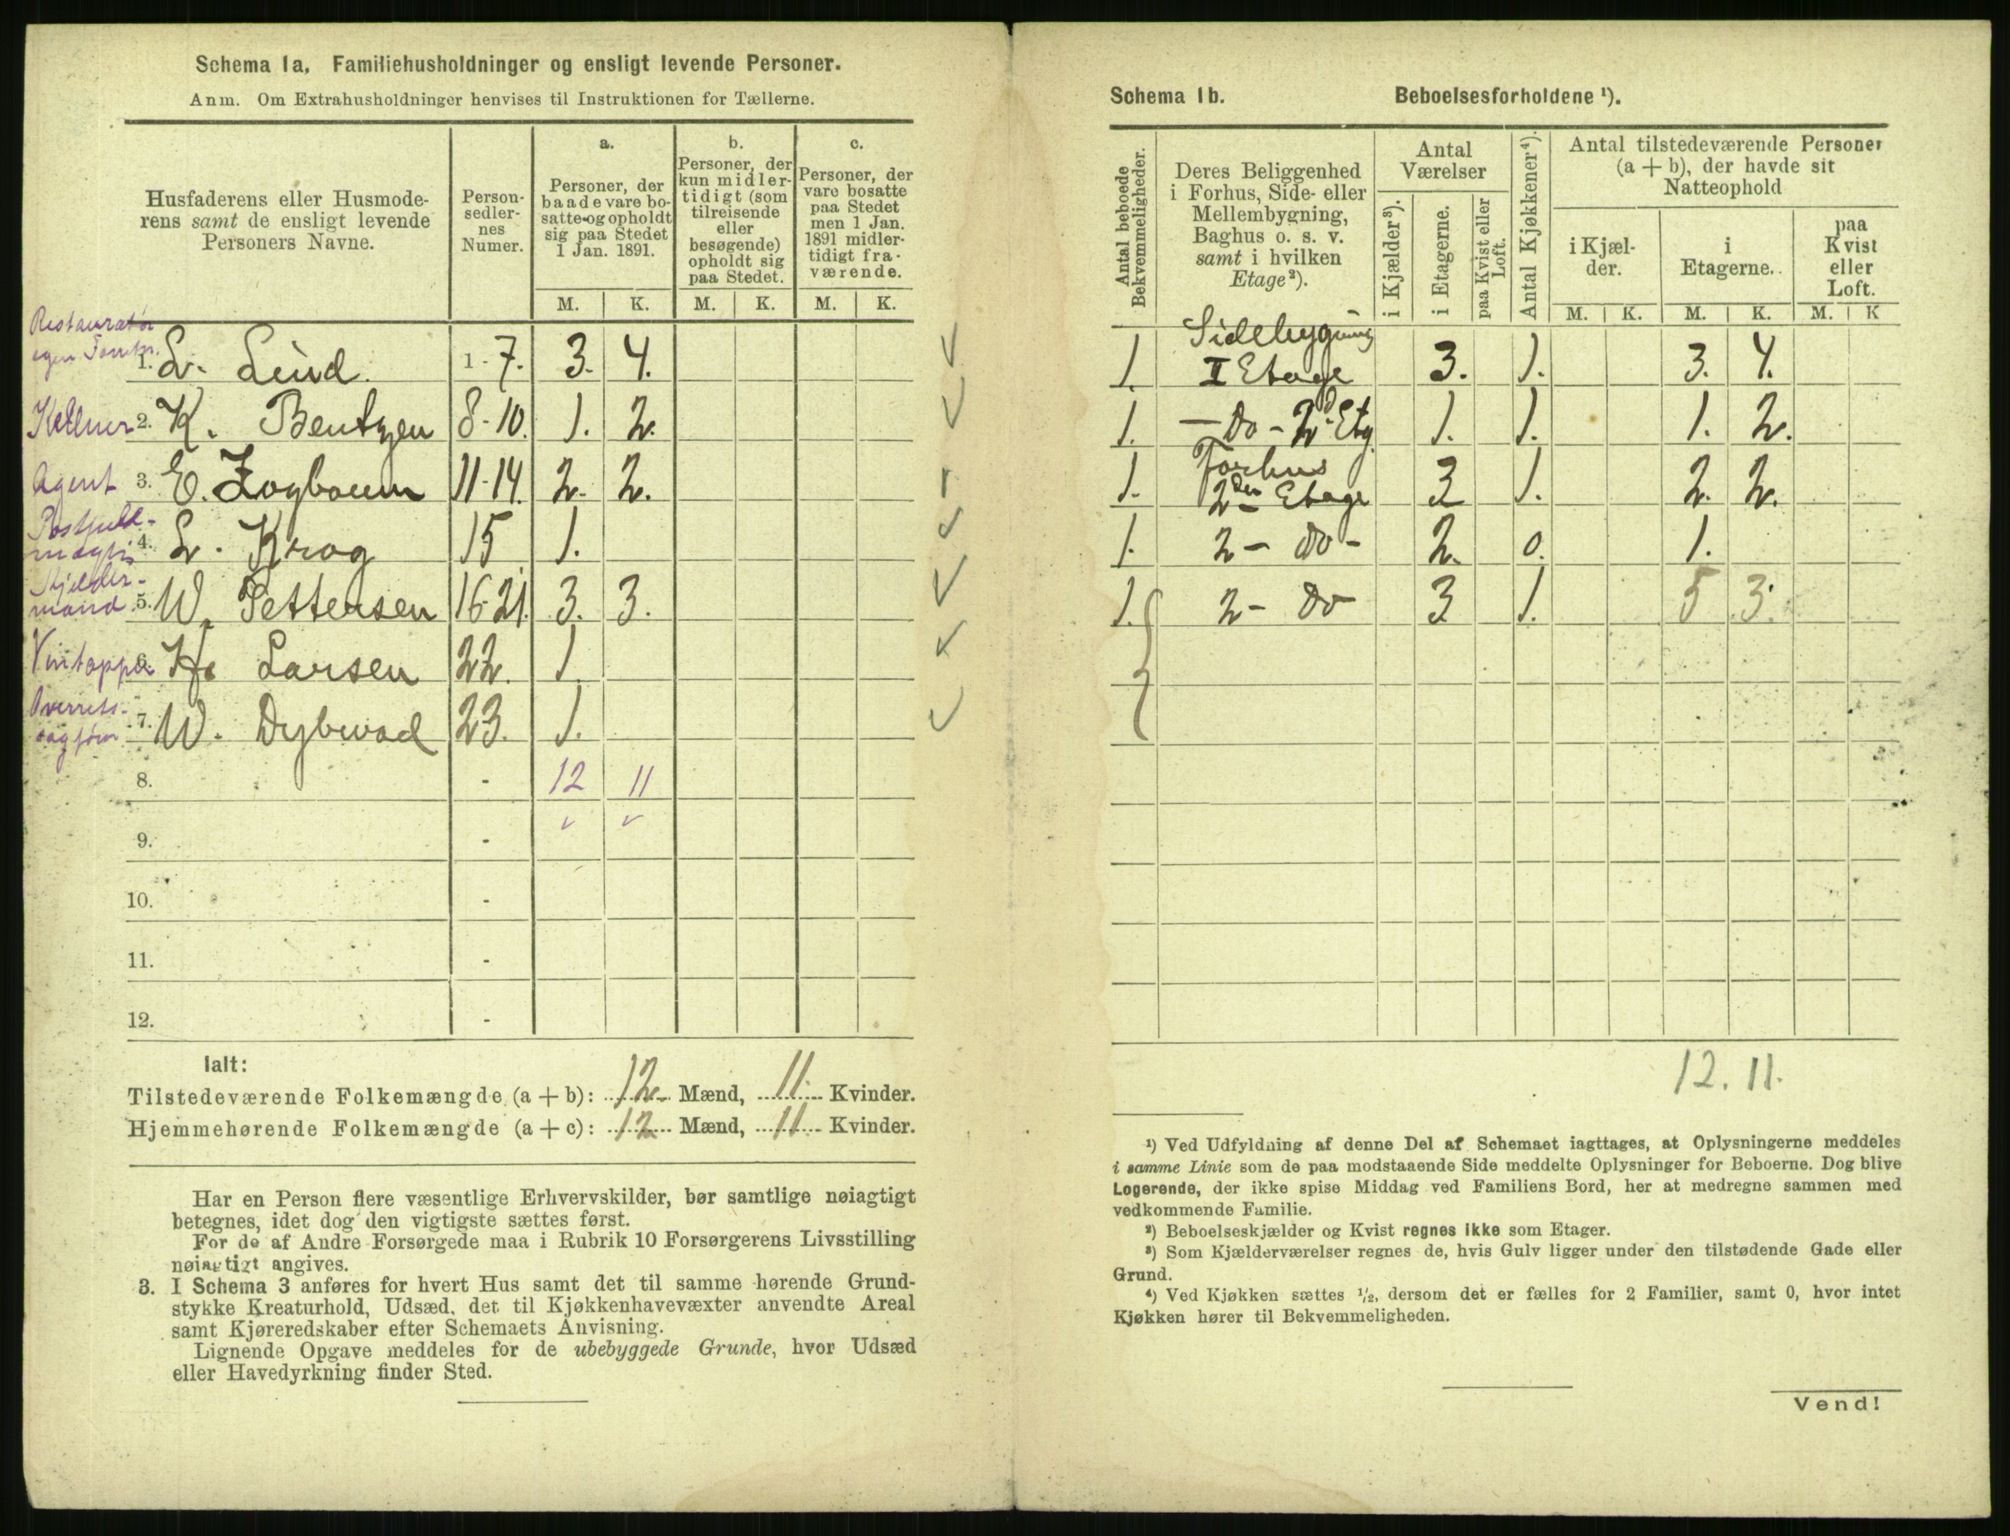 Schema 1a. Familiehusholdninger og ensligt levende Personer.
Anm. Om Extrahusholdninger henvises til Instruktionen for Tællerne.
Husfaderens eller Husmode-
rens samt de ensligt levende
Personers Navne.
Person-
sedler-
nes
Numer.
a.
Personer, der
baade vare bo-
satte og opholdt
sig paa Stedet
1 Jan. 1891.
b.
Personer, der
kun midler-
tidigt (som
tilreisende
eller
besøgende)
opholdt sig
paa Stedet.
c.
Personer, der
vare bosatte
paa Stedet
men 1 Jan.
1891 midler-
tidigt fra-
værende.
M. K. M. K. M. K.
Restauratør
egen Forretn.
1. L. Lind. 1-7. 3. 4.
Kellner 2. K. Bentzen 8-10. 1. 2.
Agent 3. E. Zogbaum 11-14. 2. 2.
Postfuld-
mægtig
4. L. Krog 15 1.
Kjelder-
mand
5. W. Pettersen 16-21. 3. 3.
Vintapper 6. H. Larsen 22. 1.
Overrets-
sagfører
7. W. Dybwad 23. 1.
8. - 12 11
9. -
10. -
11. -
12. -
Ialt:
Tilstedeværende Folkemængde (a + b): 12 Mænd, 11 Kvinder.
Hjemmehørende Folkemængde (a + c): 12 Mænd, 11 Kvinder.
Har en Person flere væsentlige Erhvervskilder, bør samtlige nøiagtigt
betegnes, idet dog den vigtigste sættes først.
For de af Andre Forsørgede maa i Rubrik 10 Forsørgerens Livsstilling
nøiagtigt angives.
3. I Schema 3 anføres for hvert Hus samt det til samme hørende Grund-
stykke Kreaturhold, Udsæd, det til Kjøkkenhavevæxter anvendte Areal
samt Kjøreredskaber efter Schemaets Anvisning.
Lignende Opgave meddeles for de ubebyggede Grunde, hvor Udsæd
eller Havedyrkning finder Sted.
Schema 1b. Beboelsesforholdene ¹).
Antal beboede
Bekvemmeligheder.
Deres Beliggenhed
i Forhus, Side- eller
Mellembygning,
Baghus o. s. v.
samt i hvilken
Etage²).
Antal
Værelser
i Kjælder³).
i Etagerne.
paa Kvist eller
Loft.
Antal Kjøkkener⁴).
Antal tilstedeværende Personer
(a + b), der havde sit
Natteophold
i Kjæl-
der.
i
Etagerne.
paa
Kvist
eller
Loft.
M. K. M. K. M. K
Sidebygning
1. I Etage 3. 1. 3. 4.
1. - do - 2d Etg 1. 1. 1. 2.
Forhus
1. 2den Etage 3 1. 2. 2.
1. 2 - do - 2. 0. 1.
1. 2 - do 3 1. 5 3.
12. 11.
¹) Ved Udfyldning af denne Del af Schemaet iagttages, at Oplysningerne meddeles
i samme Linie som de paa modstaaende Side meddelte Oplysninger for Beboerne. Dog blive
Logerende, der ikke spise Middag ved Familiens Bord, her at medregne sammen med
vedkommende Familie.
²) Beboelseskjælder og Kvist regnes ikke som Etager.
³) Som Kjælderværelser regnes de, hvis Gulv ligger under den tilstødende Gade eller
Grund.
⁴) Ved Kjøkken sættes ¹/₂, dersom det er fælles for 2 Familier, samt 0, hvor intet
Kjøkken hører til Bekvemmeligheden.
Vend!